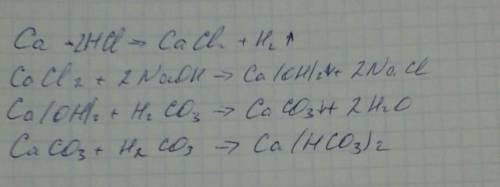 Ca + 2HCl → CaCl₂ + H₂↑
CaCl₂ + 2NaOH → Ca(OH)₂↓ + 2NaCl
Ca(OH)₂ + H₂CO₃ → CaCO₃↓ + 2H₂O
CaCO₃ + H₂CO₃ → Ca(HCO₃)₂